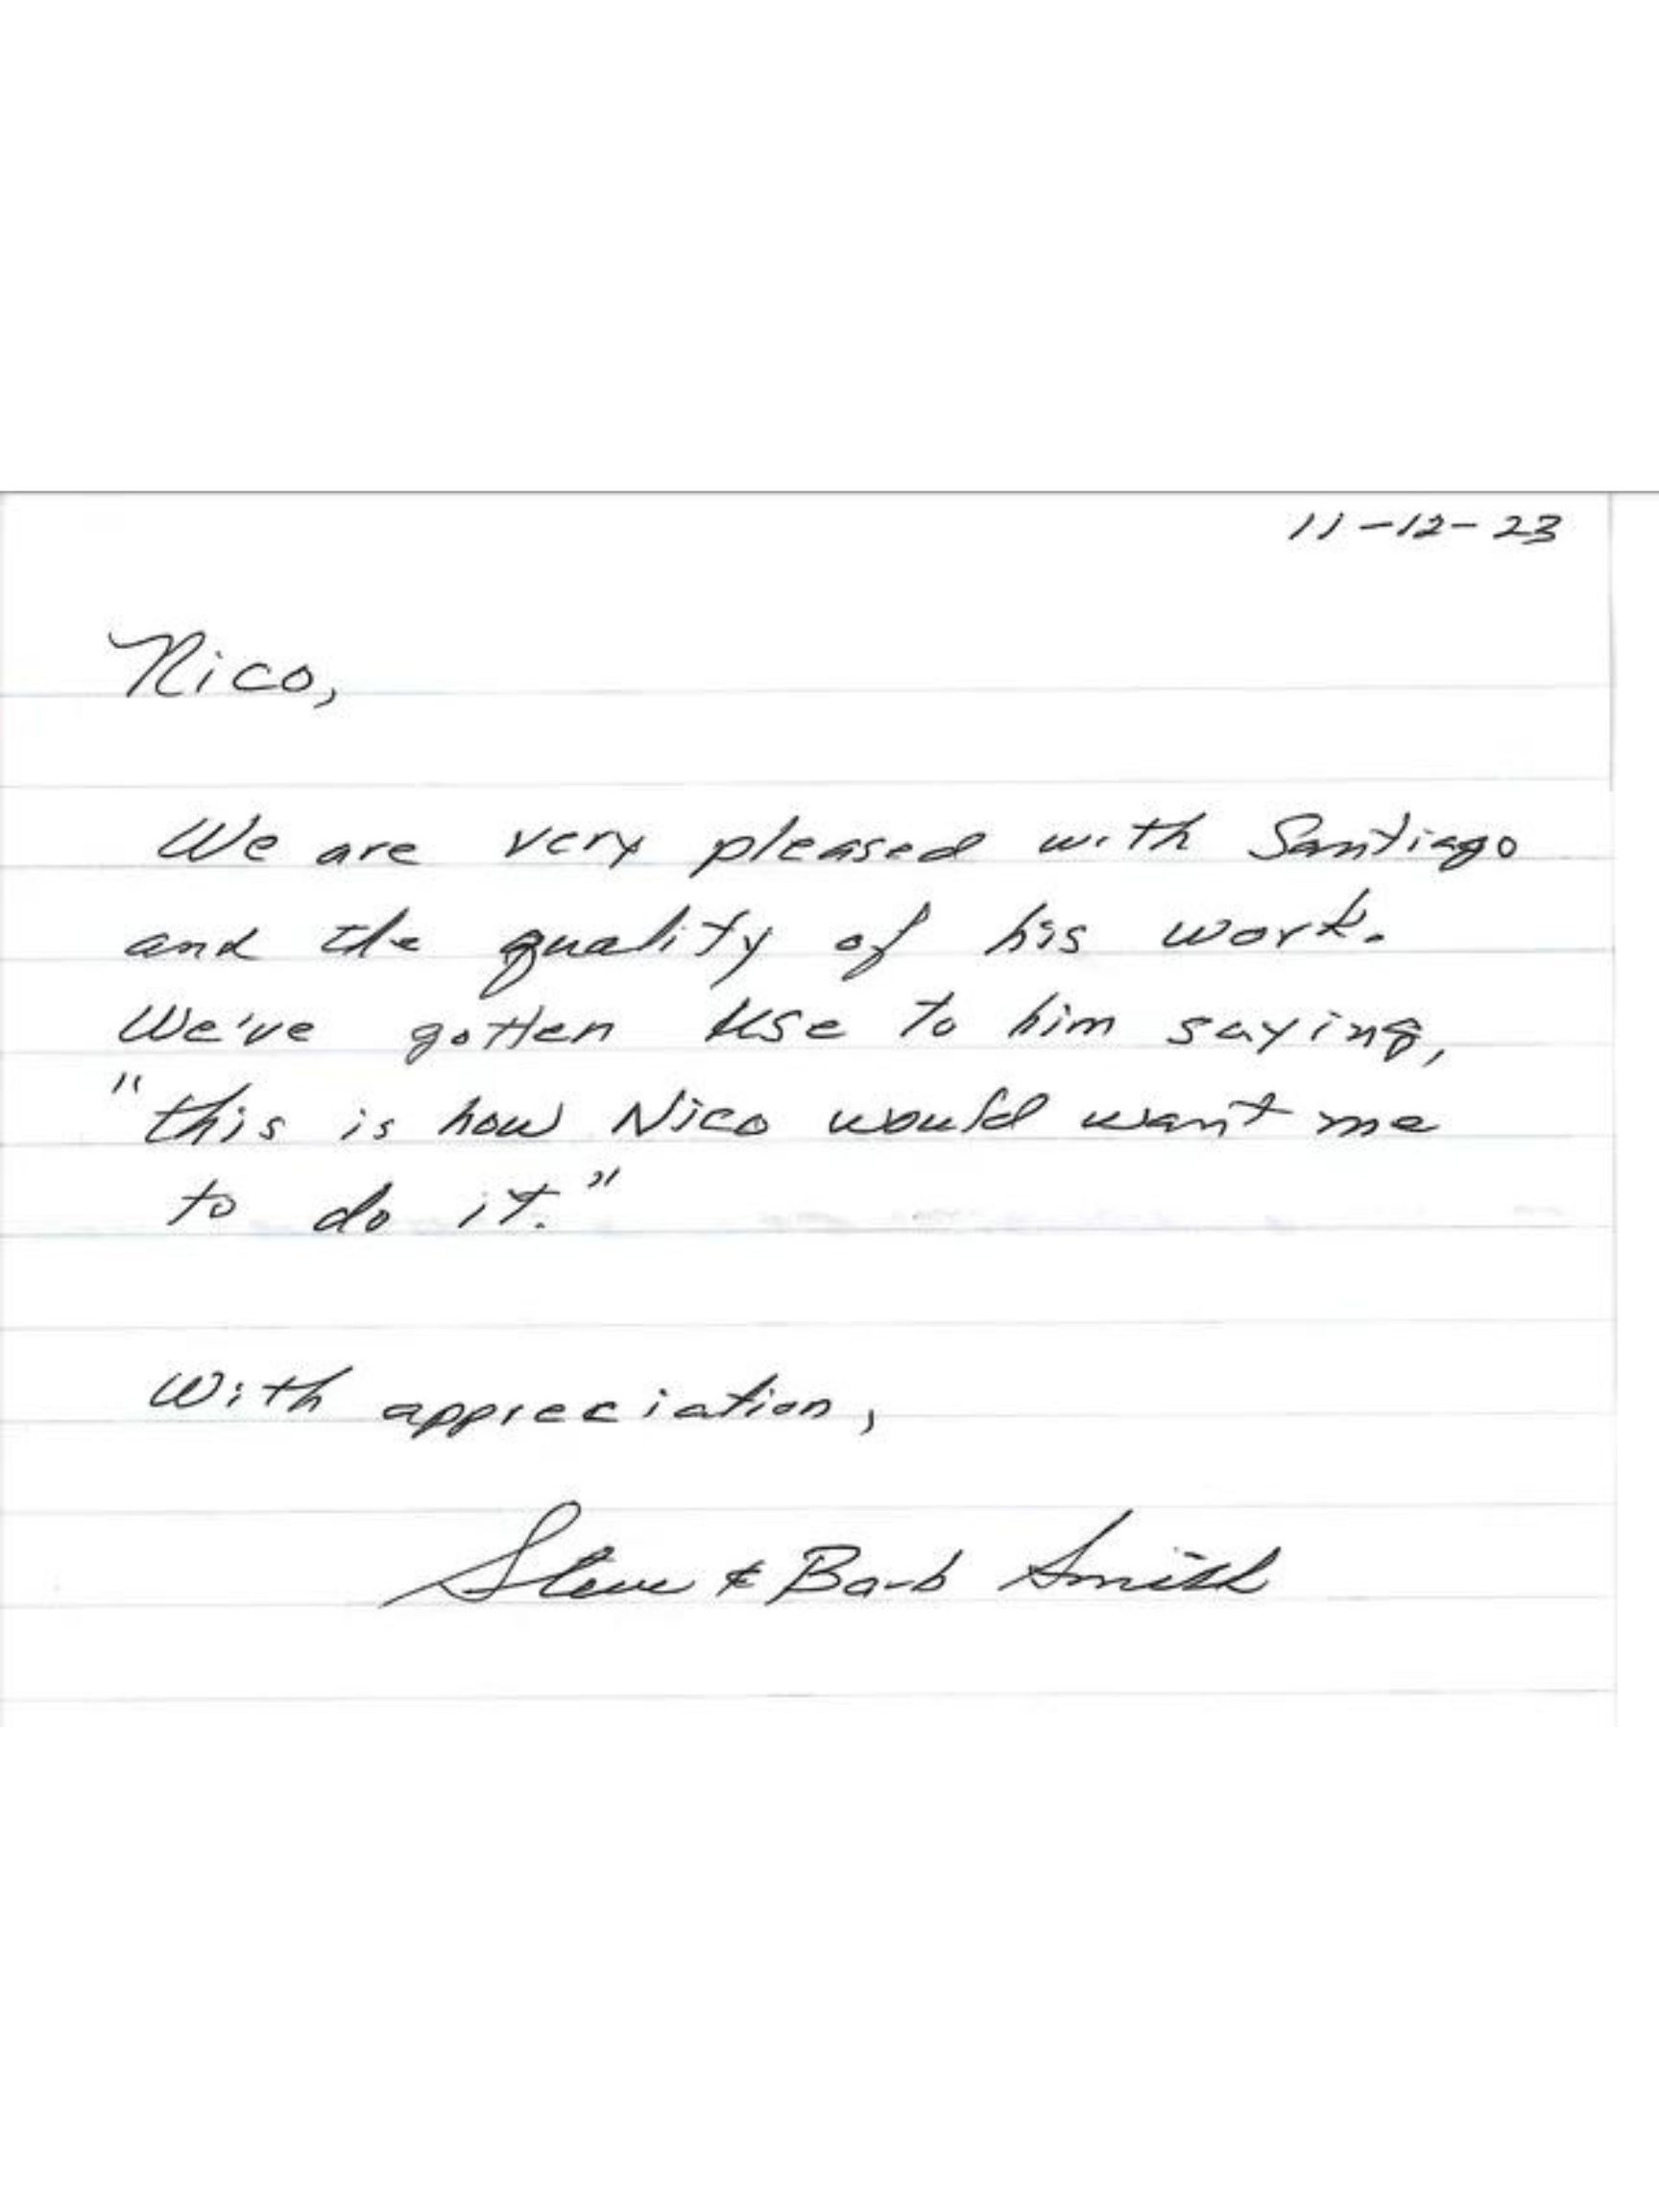 11-12-23
Nico,
We are very pleased with Santiago
and the quality of his work.
We've gotten use to him saying,
"this is how Nico would want me
to do it."
With appreciation,
Steve & Barb Smith